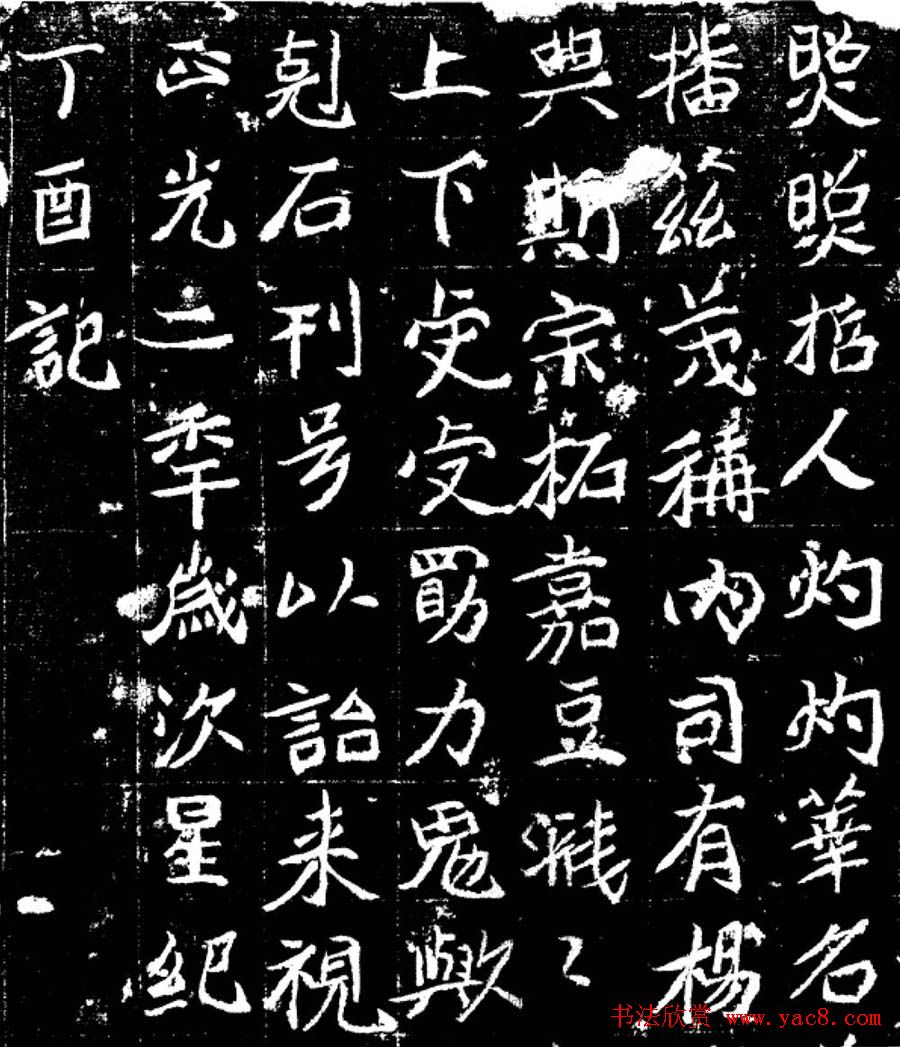 哲人灼灼華名
播兹茂稱內司有楊
典斯宗柘嘉豆濺〻
上下虔虔勖力鬼歟
剋石刊号以詒来視
正光二年歲次星紀
丁酉記
书法欣赏 www.yac8.com